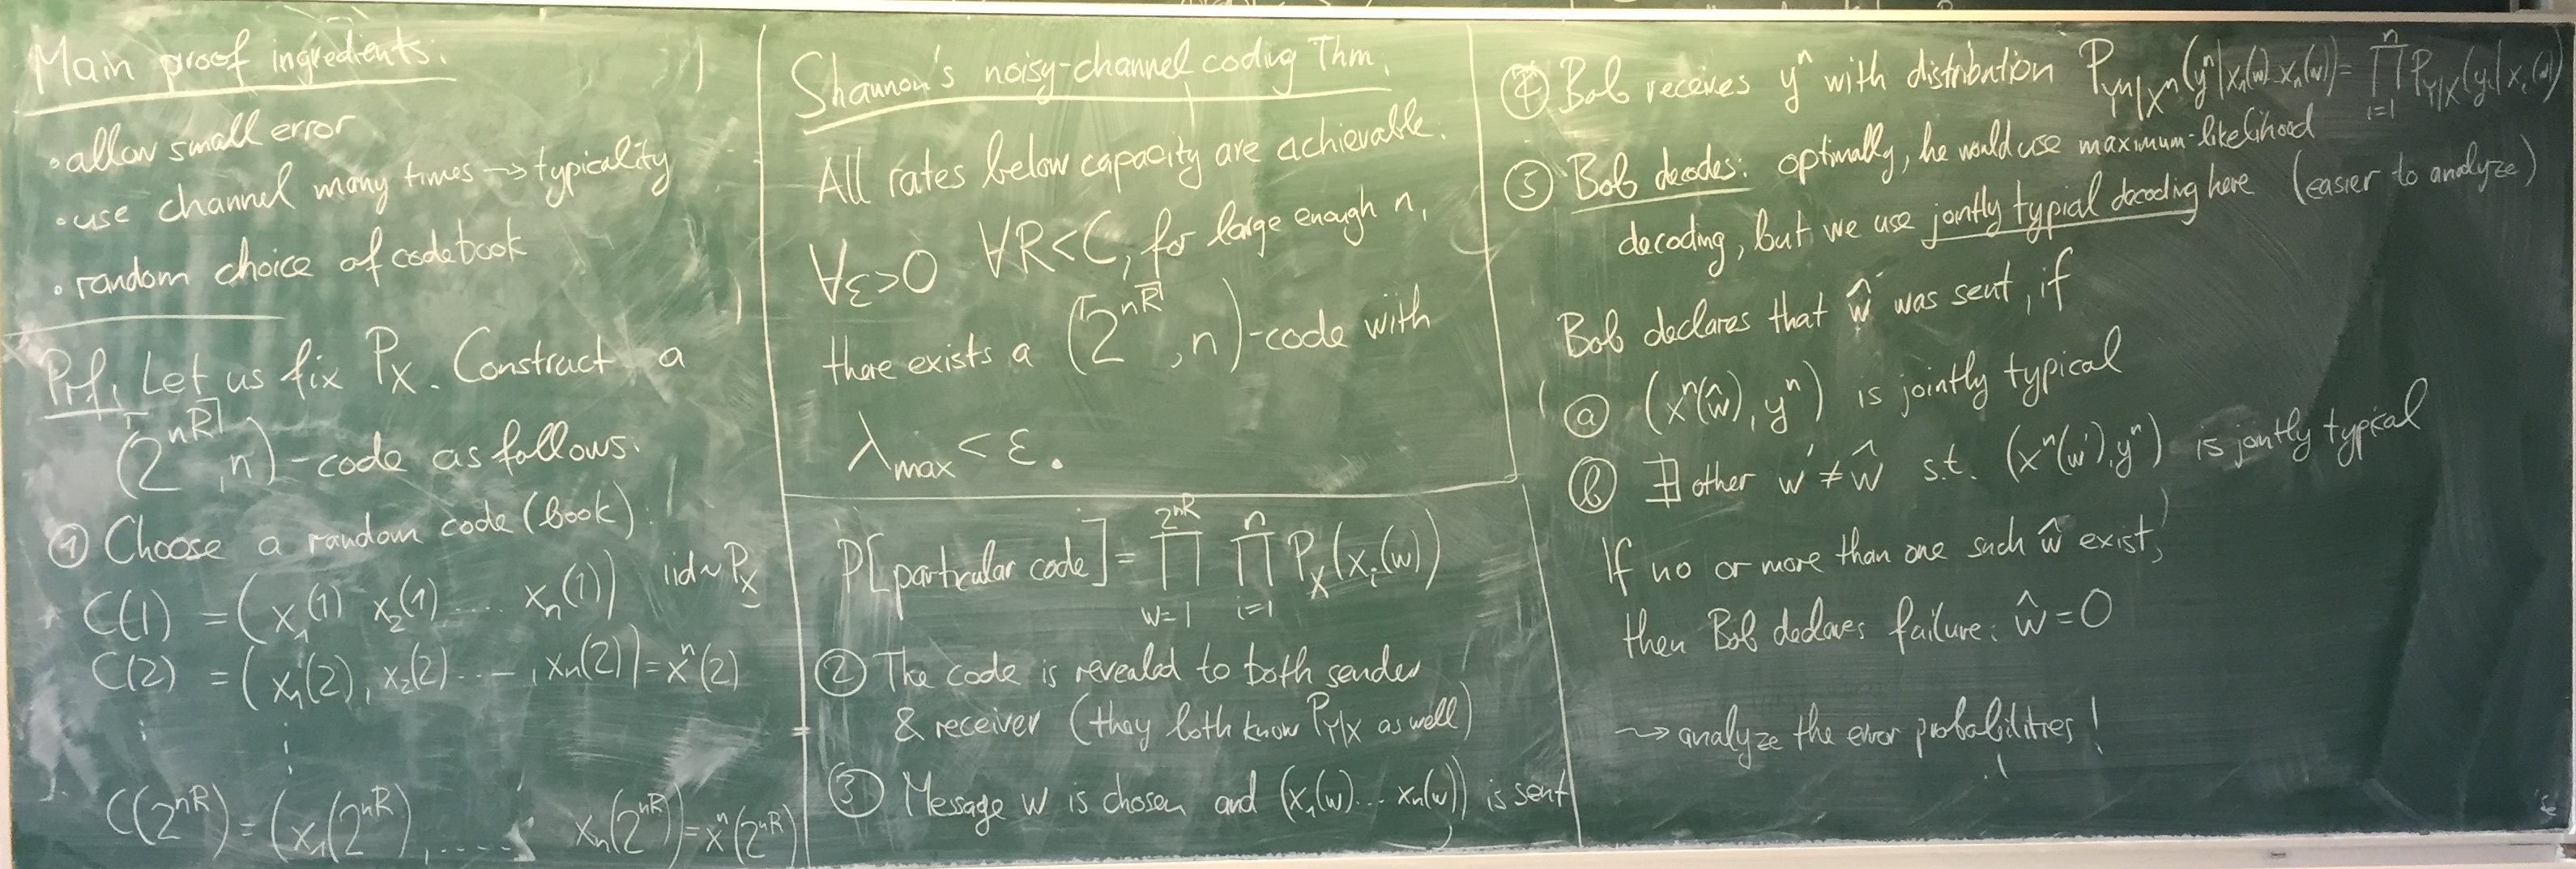 Main proof ingredients:
• allow small error
• use channel many times ⇝ typicality
• random choice of codebook
Prf: Let us fix P_X. Construct a
(2^⌈nR⌉, n)-code as follows:
① Choose a random code(book):
C(1) = (x_1(1) x_2(1) .... x_n(1)) iid ~ P_X
C(2) = (x_1(2), x_2(2) ... , x_n(2)) = x^n(2)
⋮ ⋮
C(2^{nR}) = (x_1(2^{nR}), ..... x_n(2^{nR})) = x^n(2^{nR})
Shannon's noisy-channel coding Thm:
All rates below capacity are achievable:
∀ε>0 ∀R<C, for large enough n,
there exists a (2^⌈nR⌉, n)-code with
λ_max < ε.
P[particular code] = ∏_{w=1}^{2^{nR}} ∏_{i=1}^{n} P_X(x_i(w))
② The code is revealed to both sender
& receiver (they both know P_{Y|X} as well)
③ Message w is chosen and (x_1(w)... x_n(w)) is sent
④ Bob receives y^n with distribution P_{Y^n|X^n}(y^n|x_1(w)..x_n(w)) = ∏_{i=1}^{n} P_{Y|X}(y_i|x_i(w))
⑤ Bob decodes: optimally, he would use maximum-likelihood
decoding, but we use jointly typial decoding here (easier to analyze)
Bob declares that ŵ was sent, if
ⓐ (x^n(ŵ), y^n) is jointly typical
ⓑ ∄ other w' ≠ ŵ s.t. (x^n(w'), y^n) is jointly typical
If no or more than one such ŵ exist,
then Bob declares failure: ŵ = 0
⇝ analyze the error probabilities!